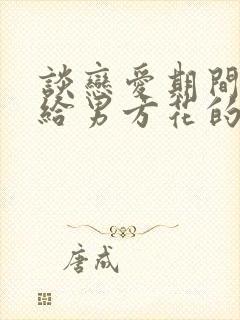 談戀愛期間
給男方花的
唐成